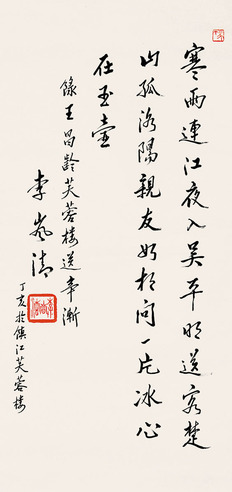 寒雨連江夜入吳平明送客楚
山孤洛陽親友如相問一片冰心
在玉壺
錄王昌齡芙蓉樓送辛漸
李嵐清
丁亥於鎮江芙蓉樓